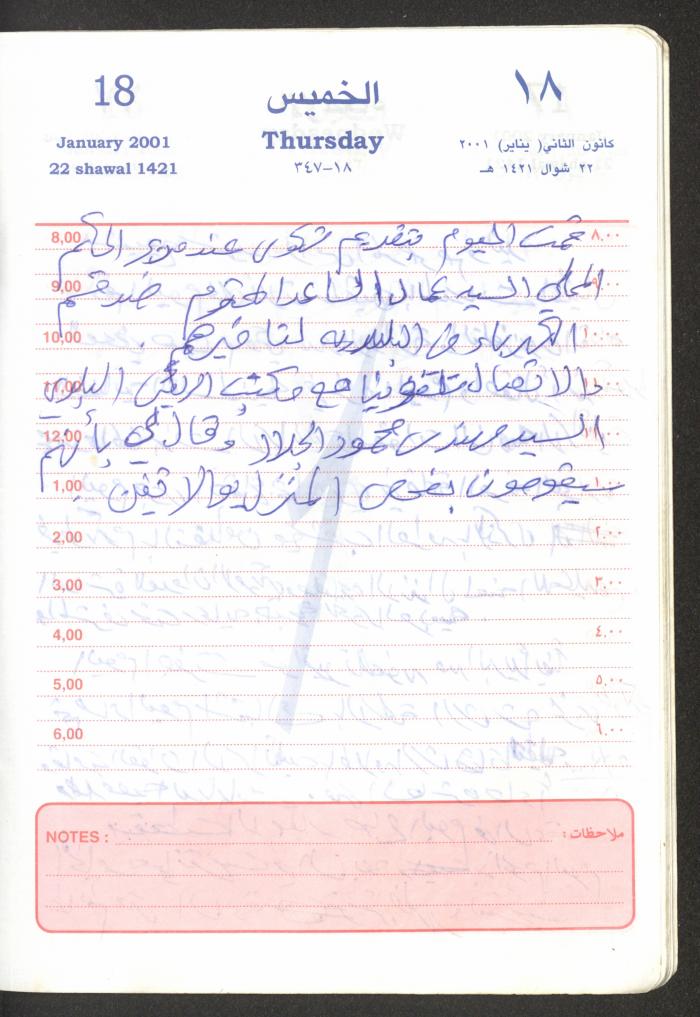 18 الخميس ١٨
January 2001 Thursday كانون الثاني( يناير) ٢٠٠١
22 shawal 1421 ٣٤٧-١٨ ٢٢ شوال ١٤٢١ هـ
8,00 قمت اليوم بتقديم شكوى عند مدير الحكم ٨،٠٠
9,00 المحلي السيد جمال الساعد المحترم ضد قسم ٩،٠٠
10,00 الكهرباء في البلديه لتأخيرهم . ١٠،٠٠
11,00 والاتصال تلفونيا مع مكتب الرئيس البلدي ١١،٠٠
12,00 السيد مهندس محمود الجلاد وقال لي بأنهم ١٢،٠٠
1,00 سيقومون بفحص المنزل يوم الاثنين . ١،٠٠
2,00 ٢،٠٠
3,00 ٣،٠٠
4,00 ٤،٠٠
5,00 ٥،٠٠
6,00 ٦،٠٠
NOTES : ملاحظات :